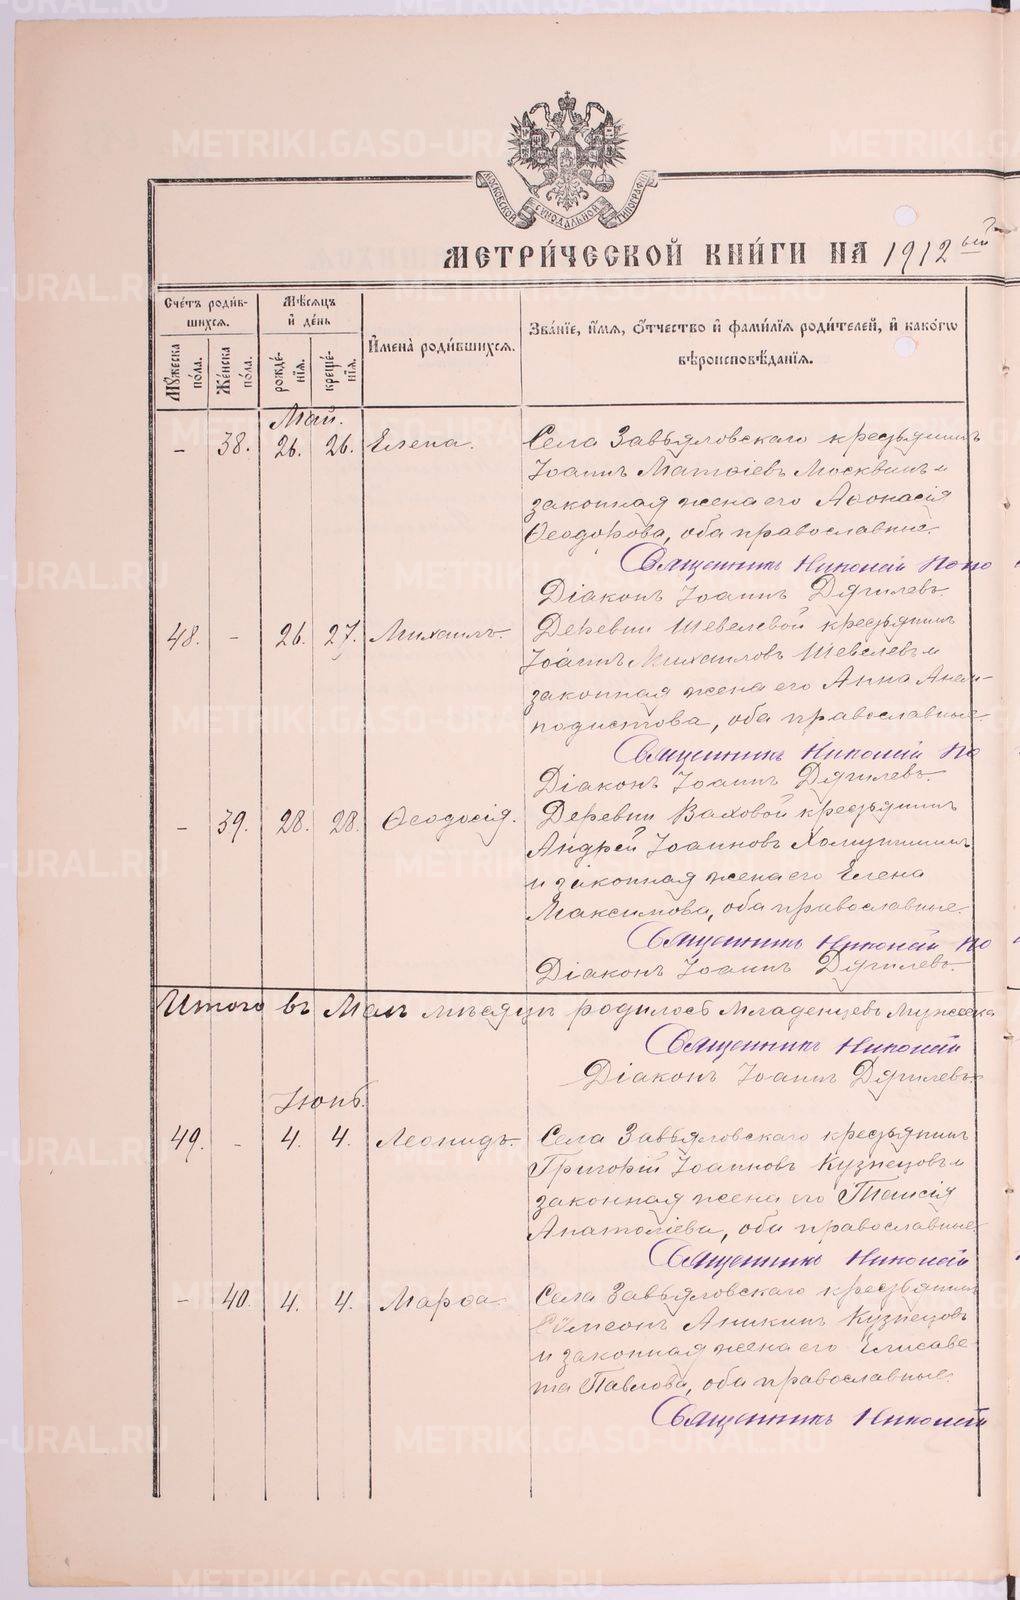 МОСКОВСКОЙ СѴНОДАЛЬНОЙ ТИПОГРАФІИ
МЕТРИ́ЧЕСКОЙ КНИ́ГИ НА 1912ый
Сче́тъ роди́в-
шихсѧ.
Мѣ́сѧцъ
и҆ де́нь
И҆мена̀ роди́вшихсѧ.
Зва́нїе, и҆́мѧ, ѻ҆́тчество и҆ фами́лїѧ роди́телей, и҆ како́гѡ
вѣроисповѣ́данїѧ.
Мꙋ́жеска
по́ла.
Же́нска
по́ла.
рожде́-
нїѧ.
креще́-
нїѧ.
Май.
– 38. 26. 26. Елена. Села Завьяловскаго крестьянинъ
Іоаннъ Матѳіевъ Москвинъ и
законная жена его Аѳонасія
Ѳеодорова, оба православные.
Священникъ Николай Попо
Діаконъ Іоаннъ Дягилевъ.
48. – 26. 27. Михаилъ. Деревни Шевелевой крестьянинъ
Іоаннъ Михаиловъ Шевелевъ и
законная жена его Анна Анем-
подистова, оба православные.
Священникъ Николай По
Діаконъ Іоаннъ Дягилевъ.
– 39. 28. 28. Ѳеодосія. Деревни Ваховой крестьянинъ
Андрей Іоанновъ Хомутининъ
и законная жена его Елена
Максимова, оба православные.
Священникъ Николай По
Діаконъ Іоаннъ Дягилевъ.
Итого въ Маѣ мѣсяцѣ родилось младенцевъ мужеска
Священникъ Николай
Діаконъ Іоаннъ Дягилевъ
Іюнь.
49. – 4. 4. Леонидъ. Села Завьяловскаго крестьянинъ
Григорій Іоанновъ Кузнецовъ и
законная жена его Таисія
Анатоліева, оба православные
Священникъ Николай
– 40. 4. 4. Марѳа. Села Завьяловскаго крестьянинъ
Сѵмеонъ Аникинъ Кузнецовъ
и законная жена его Елисаве
та Павлова, оба православные.
Священникъ Николай
METRIKI.GASO-URAL.RU